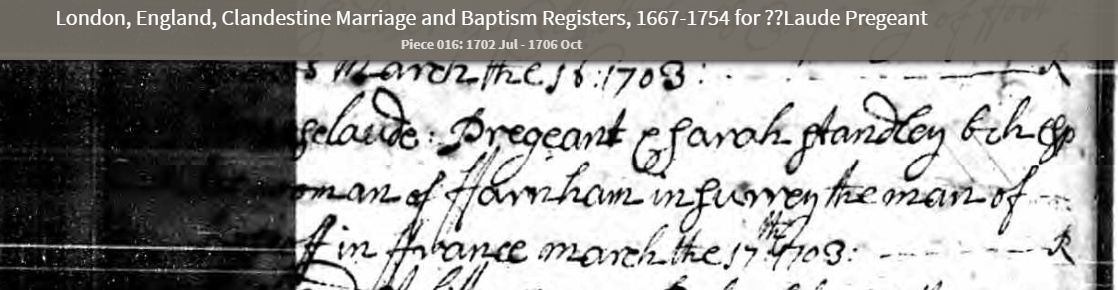 London, England, Clandestine Marriage and Baptism Registers, 1667-1754 for ??Laude Pregeant
Piece 016: 1702 Jul - 1706 Oct
March the 16: 1703: R
gelaude: Pregeant & Sarah Standley b ch
oman of ffarnham in Surrey the man of
in ffrance march the 17th 1703: R